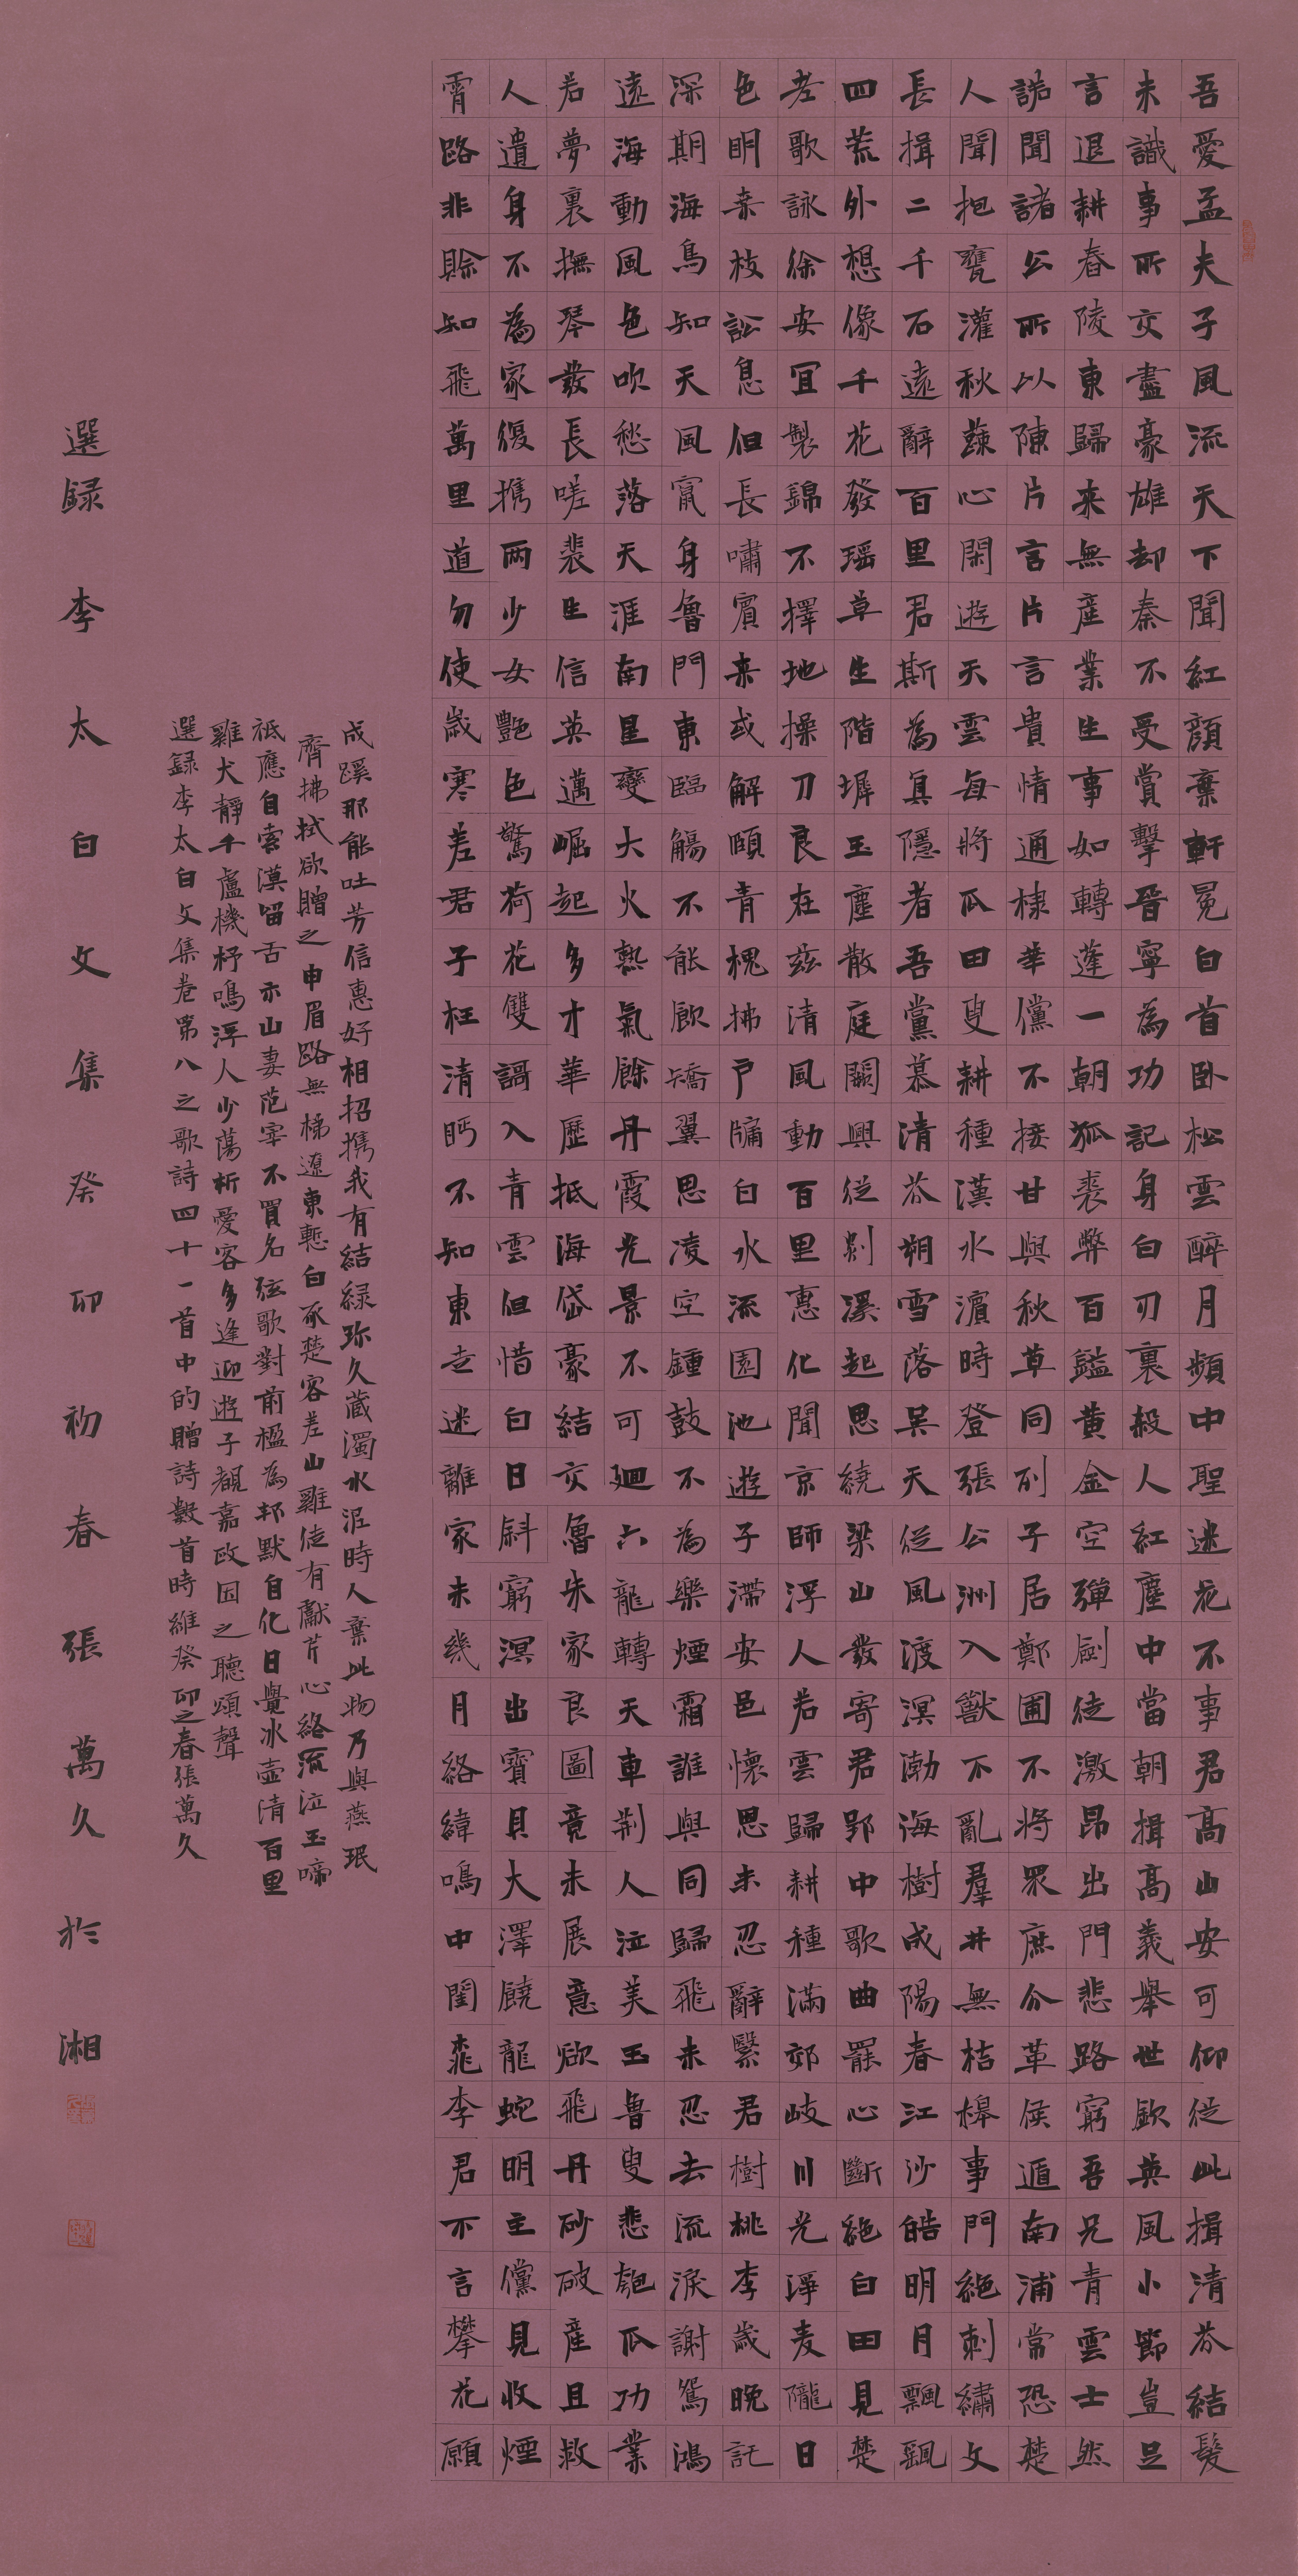 吾愛孟夫子風流天下聞紅顏棄軒冕白首臥松雲醉月頻中聖迷花不事君高山安可仰從此揖清芬結髮
未識事所交盡豪雄却秦不受賞擊晉寧為功記身白刃裏殺人紅塵中當朝揖高義舉世欽英風小節豈足
言退耕春陵東歸来無產業生事如轉蓬一朝狐裘弊百鎰黄金空彈劍徒激昂出門悲路窮吾兄青雲士然
諾聞諸公所以陳片言片言貴情通棣華儻不接甘與秋草同列子居鄭圃不將衆庶分革侯遁南浦常恐楚
人聞抱甕灌秋蔬心閑遊天雲每將瓜田叟耕種漢水濱時登張公洲入獸不亂羣井無桔橰事門絶刺繡文
長揖二千石遠辭百里君斯為真隱者吾黨慕清芬朔雪落吴天從風渡溟渤海樹成陽春江沙皓明月飄颻
四荒外想像千花發瑶草生階墀玉塵散庭闕興從剡溪起思繞梁山發寄君郢中歌曲罷心斷絶白田見楚
老歌詠徐安宜製錦不擇地操刀良在兹清風動百里惠化聞京師浮人若雲歸耕種滿郊岐川光淨麦隴日
色明桑枝訟息但長嘯賓来或解頤青槐拂户牖白水流園池遊子滯安邑懷思未忍辭繄君樹桃李歲晚託
深期海鳥知天風竄身魯門東臨觴不能飲矯翼思凌空鍾鼓不為樂煙霜誰與同歸飛未忍去流淚謝鴛鴻
遠海動風色吹愁落天涯南星變大火熱氣餘丹霞光景不可廻六龍轉天車荆人泣美玉魯叟悲匏瓜功業
若夢裏撫琴發長嗟裴生信英邁崛起多才華歷抵海岱豪結交魯朱家良圖竟未展意欲飛丹砂破產且救
人遺身不為家復携兩少女艷色驚荷花雙謌入青雲但惜白日斜窮溟出寶貝大澤饒龍蛇明主儻見收煙
霄路非賒知飛萬里道勿使歲寒差君子枉清眄不知東走迷離家未幾月絡緯鳴中閨桃李君不言攀花願
成蹊那能吐芳信惠好相招携我有結緑珎久藏濁水泥時人棄此物乃與燕珉
齊拂拭欲贈之申眉路無梯遼東慙白豕楚客羞山雞徒有獻芹心終流泣玉啼
祇應自索漠留舌示山妻范宰不買名弦歌對前楹為邦默自化日覺冰壺清百里
雞犬靜千廬機杼鳴浮人少蕩析愛客多逢迎遊子覩嘉政因之聽頌聲
選録李太白文集卷第八之歌詩四十一首中的贈詩數首時維癸卯之春張萬久
選録李太白文集癸卯初春張萬久於湘